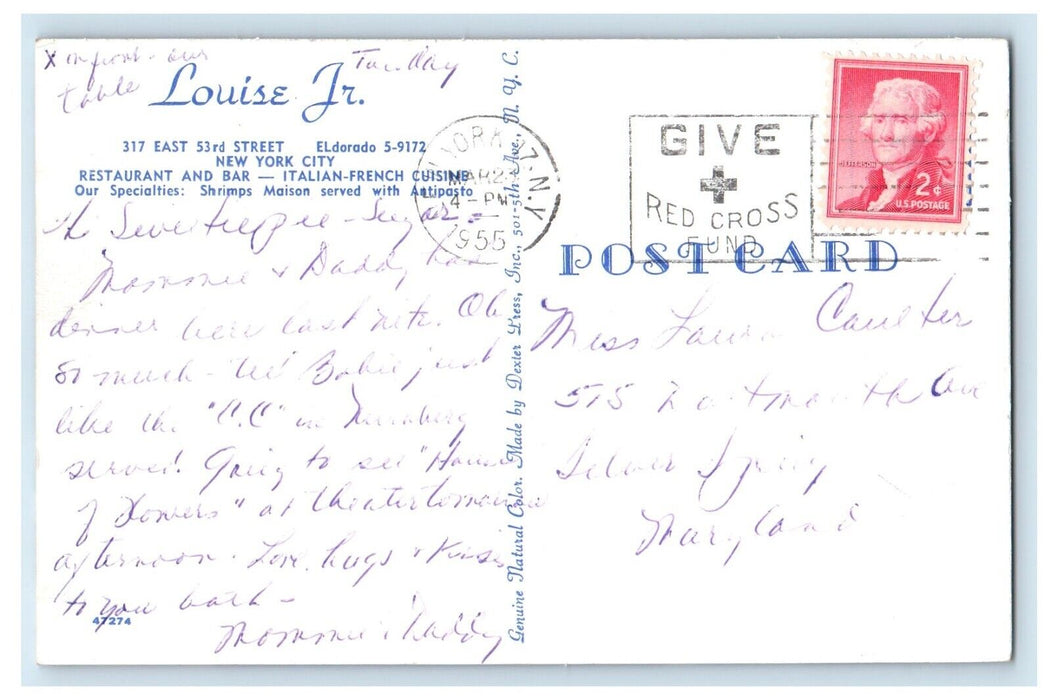 X on front - our
table
Tuesday
Louise Jr.
317 EAST 53rd STREET ELdorado 5-9172
NEW YORK CITY
RESTAURANT AND BAR — ITALIAN-FRENCH CUISINE
Our Specialties: Shrimps Maison served with Antipasto
Mommie & Daddy had
dinner here last nite. Oh
so much - Bobie just
like the "O.C." in Nurnberg
served! Going to see "House
of Flowers" at theater tomorrow
afternoon. Love, hugs & kisses
to you both -
Mommie & Daddy
47274
Genuine Natural Color. Made by Dexter Press, Inc., 501-5th Ave., N. Y. C.
YORK 17 N.Y
MAR
4 - PM
1955
GIVE
RED CROSS
FUND
JEFFERSON
2¢
U.S. POSTAGE
POST CARD
Miss Coulter
515 Dartmouth Ave
Silver Spring
Maryland